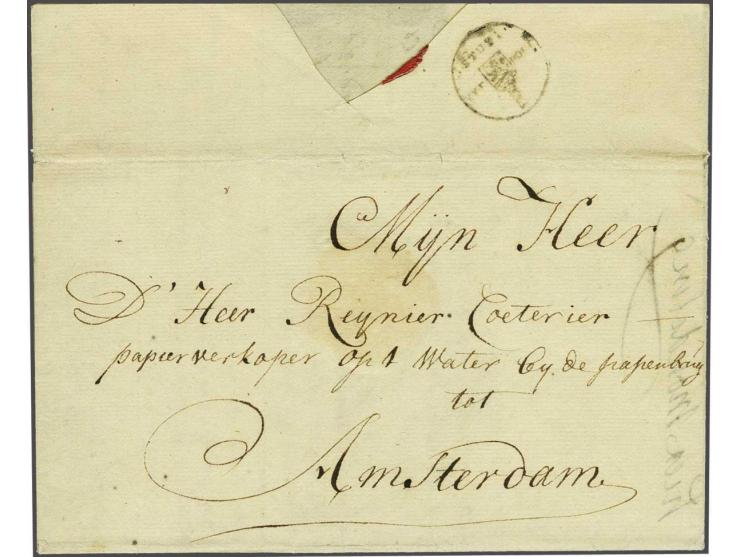 Mijn Heer
D' Heer Reijnier Coeterier
papierverkoper op 't Water by de papenbrug
tot
Amsterdam